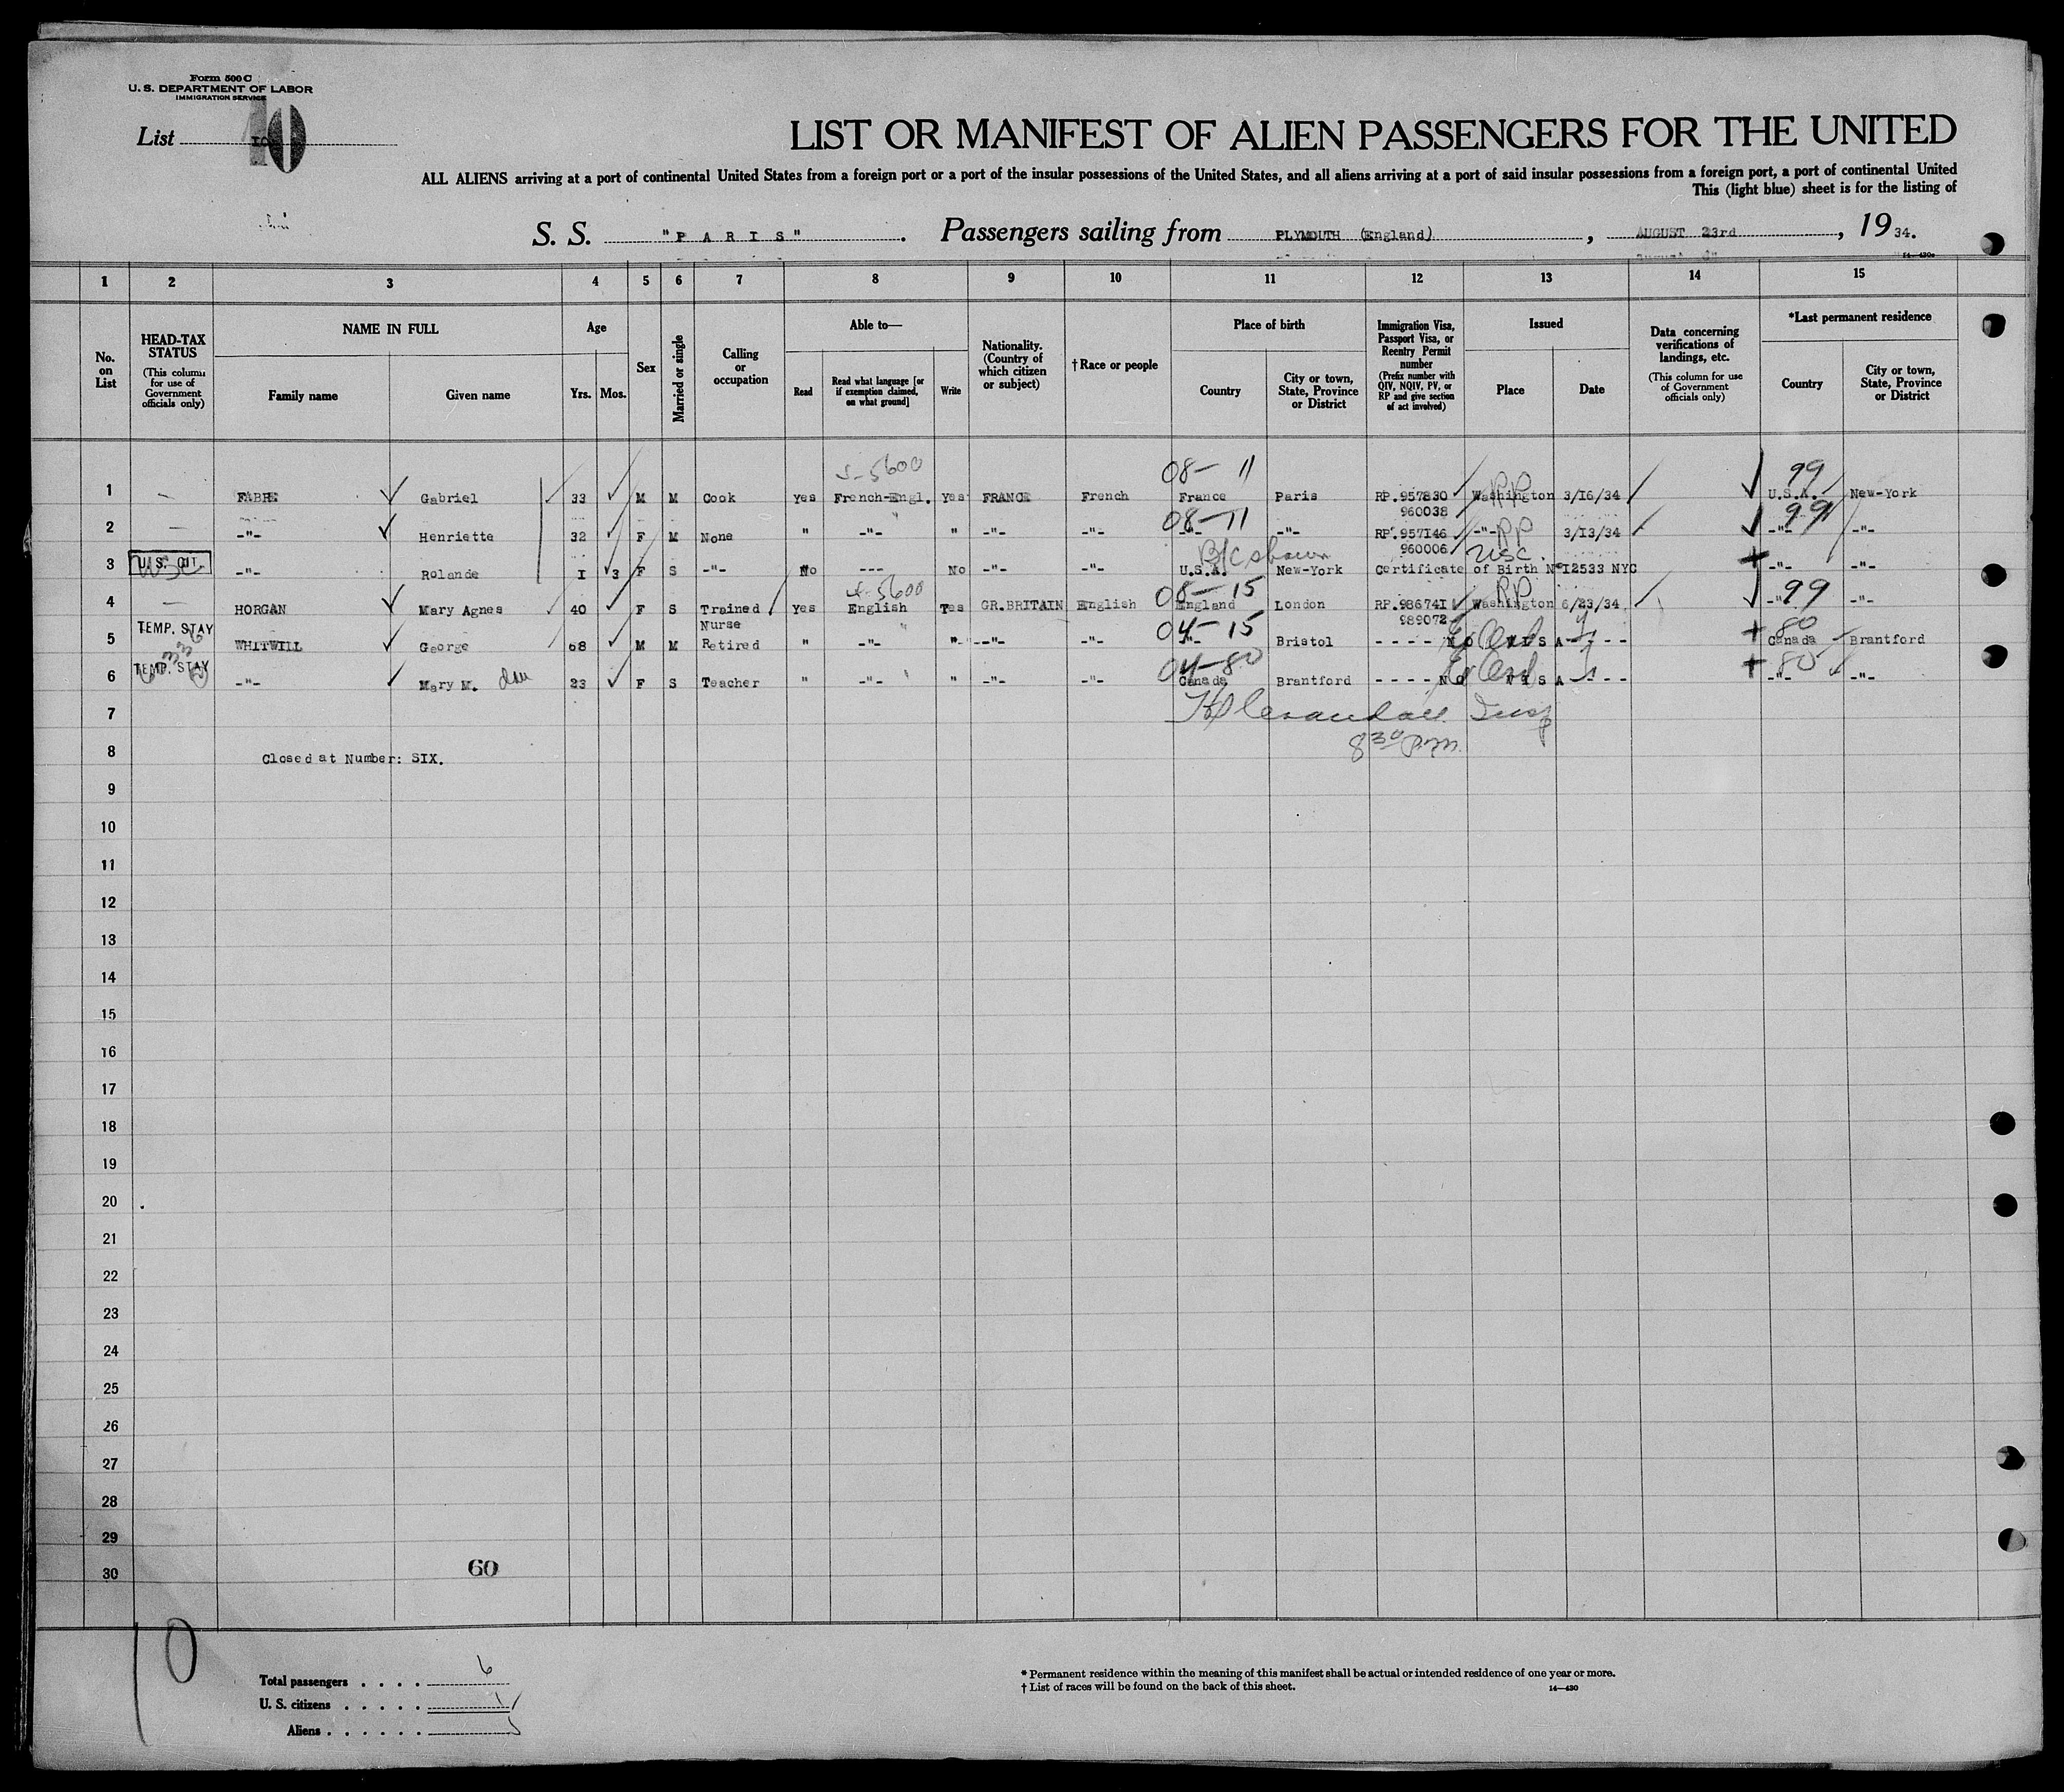 Form 500 C
U. S. DEPARTMENT OF LABOR
IMMIGRATION SERVICE
List 10
LIST OR MANIFEST OF ALIEN PASSENGERS FOR THE UNITED
ALL ALIENS arriving at a port of continental United States from a foreign port or a port of the insular possessions of the United States, and all aliens arriving at a port of said insular possessions from a foreign port, a port of continental United
This (light blue) sheet is for the listing of
S. S. "PARIS". Passengers sailing from PLYMOUTH (England), AUGUST 23rd, 1934.
1 2 3 4 5 6 7 8 9 10 11 12 13 14 15
No. on List
HEAD-TAX STATUS (This column for use of Government officials only)
NAME IN FULL
Family name Given name
Age
Yrs. Mos.
Sex
Married or single
Calling or occupation
Able to—
Read Read what language [or if exemption claimed, on what ground] Write
Nationality. (Country of which citizen or subject)
† Race or people
Place of birth
Country City or town, State, Province or District
Immigration Visa, Passport Visa, or Reentry Permit number (Prefix number with QIV, NQIV, PV, or RP and give section of act involved)
Issued
Place Date
Data concerning verifications of landings, etc. (This column for use of Government officials only)
*Last permanent residence
Country City or town, State, Province or District
5-5600 08-11 RP 99
1 — FABRE Gabriel 33 M M Cook yes French-Engl. yes FRANCE French France Paris RP.957830 Washington 3/16/34 U.S.A. New-York
960038
08-11 RP 99
2 — -"- Henriette 32 F M None " -"- " -"- -"- -"- -"- RP.957146 -"- 3/13/34 -"- -"-
960006
B/C shown USC.
3 U.S. CIT. USC -"- Rolande I 3 F S -"- No --- No -"- -"- U.S.A. New-York Certificate of Birth N°I2533 NYC -"- -"-
4-5600 08-15 RP 99
4 — HORGAN Mary Agnes 40 F S Trained Nurse Yes English Yes GR.BRITAIN English England London RP.986741 Washington 6/23/34 -"- -"-
989072
04-15 80
5 TEMP. STAY WHITWILL George 68 M M Retired " -"- " -"- -"- -"- Bristol - - - - NO VISA - - - - Canada Brantford
04-80 80
6 TEMP. STAY -"- Mary M. 23 F S Teacher " -"- " -"- -"- Canada Brantford - - - - NO VISA - - - - -"- -"-
7
8 30 P.M.
8
Closed at Number: SIX.
9
10
11
12
13
14
15
16
17
18
19
20
21
22
23
24
25
26
27
28
29
30
60
10
Total passengers . . . . 6
U. S. citizens . . . . . 1
Aliens . . . . . . 5
* Permanent residence within the meaning of this manifest shall be actual or intended residence of one year or more.
† List of races will be found on the back of this sheet.
14—430